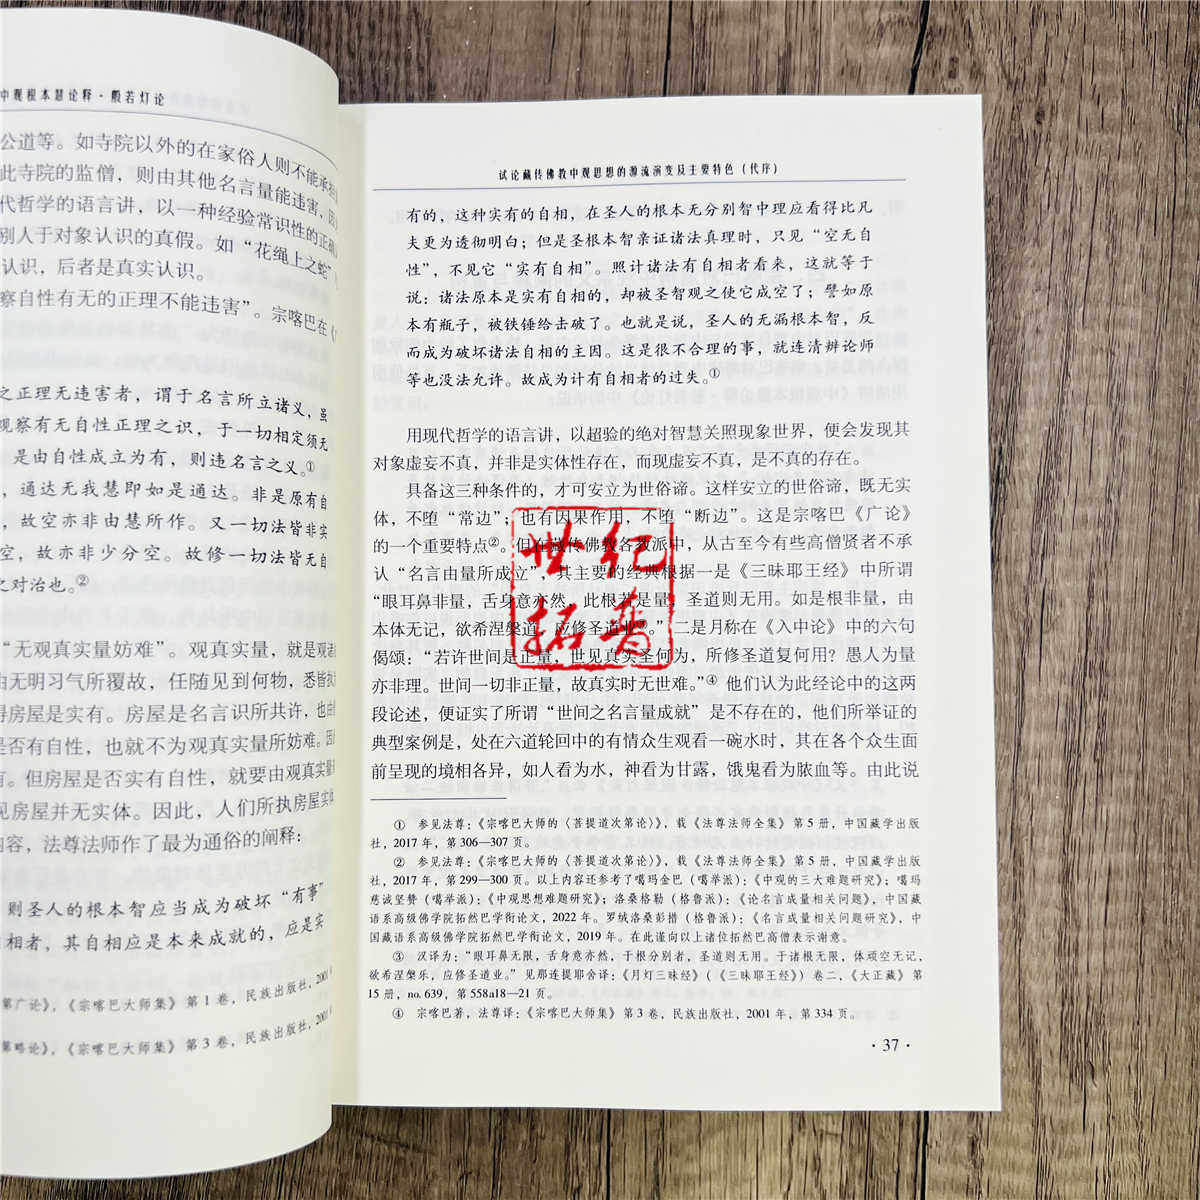 中观根本慧论释·般若灯论
公道等。如寺院以外的在家俗人则不能承
此寺院的监僧，则由其他名言量能违害，因
代哲学的语言讲，以一种经验常识性的正确
别人于对象认识的真假。如“花绳上之蛇”
认识，后者是真实认识。
察自性有无的正理不能违害”。宗喀巴在《
之正理无违害者，谓于名言所立诸义，虽
观察有无自性正理之识，于一切相定须无
是由自性成立为有，则违名言之义。①
，通达无我慧即如是通达。非是原有自
，故空亦非由慧所作。又一切法皆非实
空，故亦非少分空。故修一切法皆无自
之对治也。②
“无观真实量妨难”。观真实量，就是观诸
由无明习气所覆故，任随见到何物，悉皆执
得房屋是实有。房屋是名言识所共许，也由
是否有自性，也就不为观真实量所妨难。因
有。但房屋是否实有自性，就要由观真实量
见房屋并无实体。因此，人们所执房屋实体
内容，法尊法师作了最为通俗的阐释：
则圣人的根本智应当成为破坏“有事”
相者，其自相应是本来成就的，应是实
第广论》，《宗喀巴大师集》第 1 卷，民族出版社，2001
第略论》，《宗喀巴大师集》第 3 卷，民族出版社，2001
试论藏传佛教中观思想的源流演变及主要特色（代序）
有的，这种实有的自相，在圣人的根本无分别智中理应看得比凡
夫更为透彻明白；但是圣根本智亲证诸法真理时，只见“空无自
性”，不见它“实有自相”。照计诸法有自相者看来，这就等于
说：诸法原本是实有自相的，却被圣智观之使它成空了；譬如原
本有瓶子，被铁锤给击破了。也就是说，圣人的无漏根本智，反
而成为破坏诸法自相的主因。这是很不合理的事，就连清辨论师
等也没法允许。故成为计有自相者的过失。①
用现代哲学的语言讲，以超验的绝对智慧关照现象世界，便会发现其
对象虚妄不真，并非是实体性存在，而现虚妄不真，是不真的存在。
具备这三种条件的，才可安立为世俗谛。这样安立的世俗谛，既无实
体，不堕“常边”；也有因果作用，不堕“断边”。这是宗喀巴《广论》
的一个重要特点②。但在藏传佛教各教派中，从古至今有些高僧贤者不承
认“名言由量所成立”，其主要的经典根据一是《三昧耶王经》中所谓
“眼耳鼻非量，舌身意亦然，此根若是量，圣道则无用。如是根非量，由
本体无记，欲希涅槃道，应修圣道业③。”二是月称在《入中论》中的六句
偈颂：“若许世间是正量，世见真实圣何为，所修圣道复何用？愚人为量
亦非理。世间一切非正量，故真实时无世难。”④ 他们认为此经论中的这两
段论述，便证实了所谓“世间之名言量成就”是不存在的，他们所举证的
典型案例是，处在六道轮回中的有情众生观看一碗水时，其在各个众生面
前呈现的境相各异，如人看为水，神看为甘露，饿鬼看为脓血等。由此说
世纪
拓普
① 参见法尊：《宗喀巴大师的〈菩提道次第论〉》，载《法尊法师全集》第 5 册，中国藏学出版
社，2017 年，第 306—307 页。
② 参见法尊：《宗喀巴大师的〈菩提道次第论〉》，载《法尊法师全集》第 5 册，中国藏学出版
社，2017 年，第 299—300 页。以上内容还参考了噶玛金巴（噶举派）：《中观的三大难题研究》；噶玛
慈诚坚赞（噶举派）：《中观思想难题研究》；洛桑格勒（格鲁派）：《论名言成量相关问题》，中国藏
语系高级佛学院拓然巴学衔论文，2022 年。罗绒洛桑彭措（格鲁派）：《名言成量相关问题研究》，中
国藏语系高级佛学院拓然巴学衔论文，2019 年。在此谨向以上诸位拓然巴高僧表示谢意。
③ 汉译为：“眼耳鼻无限，舌身意亦然，于根分别者，圣道则无用。于诸根无限，体顽空无记，
欲希涅槃乐，应修圣道业。”见那连提耶舍译：《月灯三昧经》（《三昧耶王经》）卷二，《大正藏》第
15 册，no. 639，第 558a18—21 页。
④ 宗喀巴著，法尊译：《宗喀巴大师集》第 3 卷，民族出版社，2001 年，第 334 页。
· 37 ·